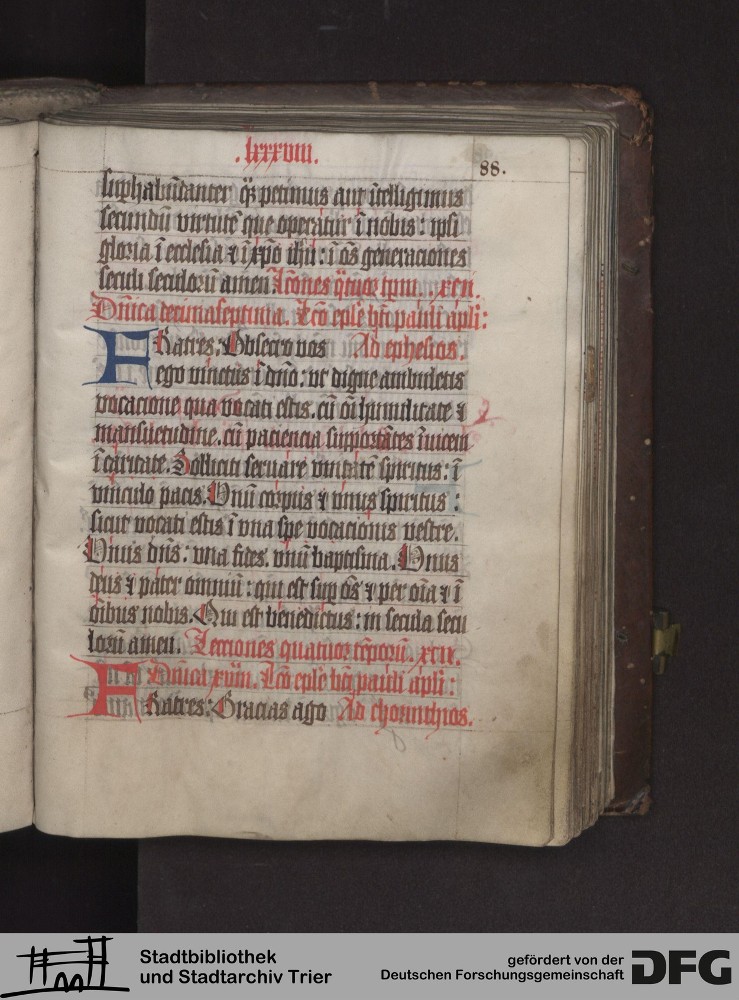 .lxxxviii.
88.
suphabūdanter q̄ȝ petimus aut ītelligimus
secundū virtutē que operatur ī nobis: ipsi
gloria ī ecclesia ⁊ ī xp̄o ih̄u: ī oēs generaciones
seculi seculorū amen. Lc̄ones q̄tuor tpm̄. xcii.
Dn̄ica decimaseptima. Lc̄o ep̄le bt̄i pauli apl̄i:
Fratres: Obsecro vos Ad ephesios.
ego vinctus ī dn̄o: vt digne ambuletis
vocacione qua vocati estis. cū oī humilitate ⁊
mansuetudine. cū paciencia supportātes īuicem
ī caritate. Solliciti seruare vnitatē spiritus: ī
vinculo pacis. Vnū corpus ⁊ vnus spiritus:
sicut vocati estis ī vna spe vocacionis vestre.
Vnus dn̄s: vna fides. vnū baptisma. Vnus
deus ⁊ pater omniū: qui est sup ōs ⁊ per oīa ⁊ ī
oībus nobis. Qui est benedictus: in secula secu
lorū amen. Lectiones quatuor tēporū. xcii.
Dn̄ica xviii. Lc̄o ep̄le bt̄i pauli apl̄i:
Fratres: Gracias ago Ad chorinthios.
Stadtbibliothek
und Stadtarchiv Trier
gefördert von der
Deutschen Forschungsgemeinschaft
DFG